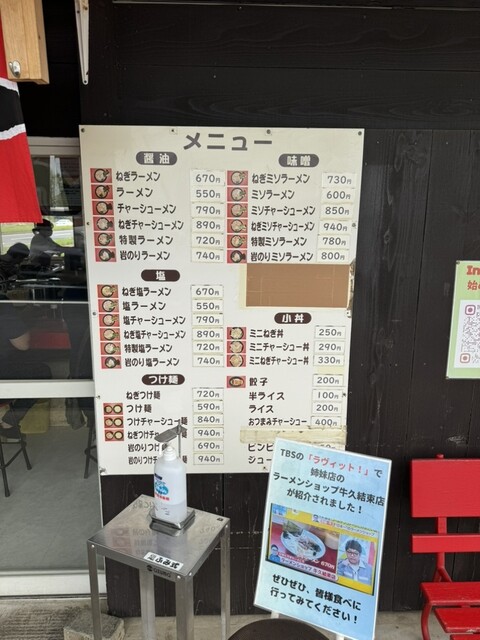 メニュー
醤油
ねぎラーメン 670円
ラーメン 550円
チャーシューメン 790円
ねぎチャーシューメン 890円
特製ラーメン 720円
岩のりラーメン 740円
塩
ねぎ塩ラーメン 670円
塩ラーメン 550円
塩チャーシューメン 790円
ねぎ塩チャーシューメン 890円
特製塩ラーメン 720円
岩のり塩ラーメン 740円
つけ麺
ねぎつけ麺 720円
つけ麺 590円
つけチャーシュー麺 840円
ねぎつけチャーシュー麺 940円
岩のりつけ 690円
岩のりつけ 940円
味噌
ねぎミソラーメン 730円
ミソラーメン 600円
ミソチャーシューメン 850円
ねぎミソチャーシューメン 940円
特製ミソラーメン 780円
岩のりミソラーメン 800円
小丼
ミニねぎ丼 250円
ミニチャーシュー丼 290円
ミニねぎチャーシュー丼 330円
餃子 200円
半ライス 100円
ライス 200円
おつまみチャーシュー 400円
TBSの「ラヴィット！」で
姉妹店の
ラーメンショップ牛久結束店
が紹介されました！
ぜひぜひ、皆様食べに
行ってみてください！